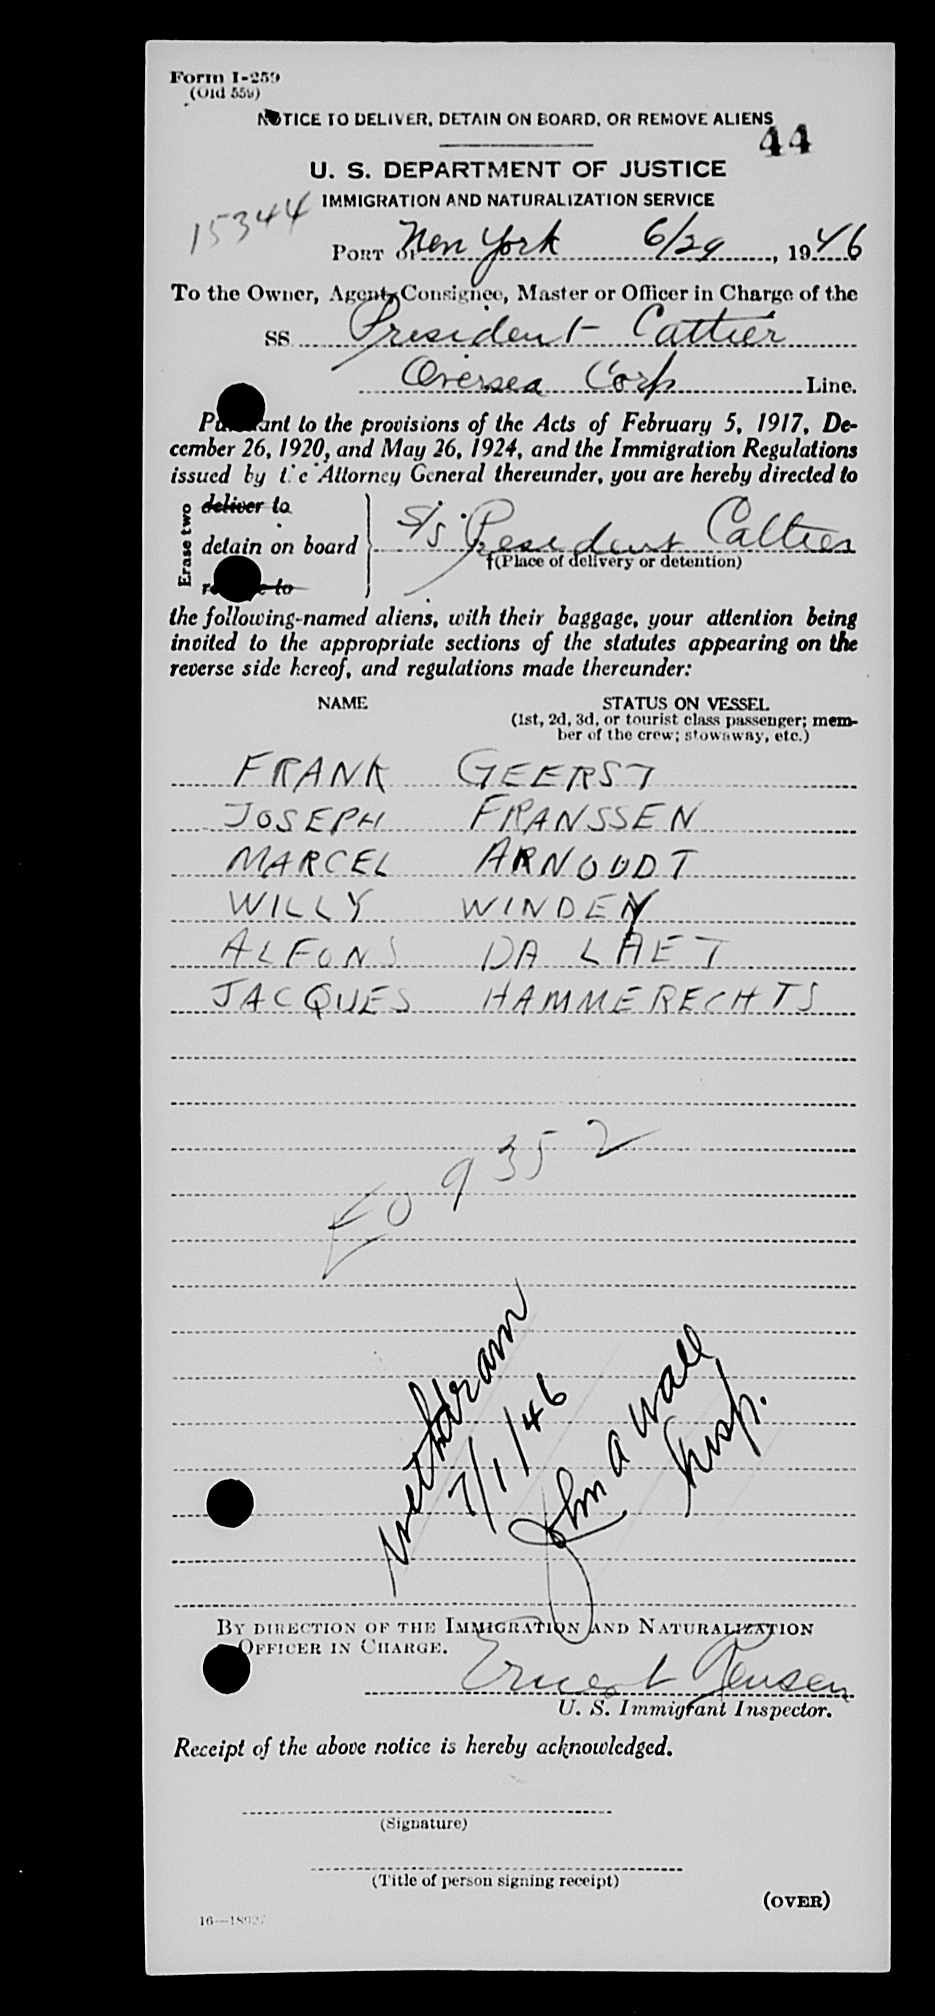 Form I-259
(Old 559)
NOTICE TO DELIVER, DETAIN ON BOARD, OR REMOVE ALIENS
44
U. S. DEPARTMENT OF JUSTICE
IMMIGRATION AND NATURALIZATION SERVICE
15344
PORT OF New York 6/29, 1946
To the Owner, Agent, Consignee, Master or Officer in Charge of the
SS President Cattier
Oversea Corp Line.
Pursuant to the provisions of the Acts of February 5, 1917, De-
cember 26, 1920, and May 26, 1924, and the Immigration Regulations
issued by the Attorney General thereunder, you are hereby directed to
Erase two
deliver to
detain on board
remove to
S/S President Cattier
†(Place of delivery or detention)
the following-named aliens, with their baggage, your attention being
invited to the appropriate sections of the statutes appearing on the
reverse side hereof, and regulations made thereunder:
NAME STATUS ON VESSEL
(1st, 2d, 3d, or tourist class passenger; mem-
ber of the crew; stowaway, etc.)
FRANK GEERST
JOSEPH FRANSSEN
MARCEL ARNOUDT
WILLY WINDEN
ALFONS DA LAET
JACQUES HAMMERECHTS
9352
Withdrawn
7/1/46
John A Wall
Insp.
BY DIRECTION OF THE IMMIGRATION AND NATURALIZATION
OFFICER IN CHARGE.
Ernest Jensen
U. S. Immigrant Inspector.
Receipt of the above notice is hereby acknowledged.
(Signature)
(Title of person signing receipt)
(OVER)